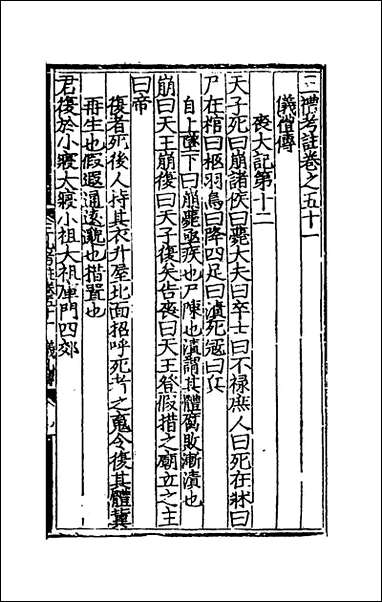 三禮考註卷之五十一
儀禮傳
喪大記第十二
天子死曰崩諸侯曰薨大夫曰卒士曰不禄庶人曰死在牀曰
尸在棺曰柩羽鳥曰降四足曰漬死寇曰兵
自上墜下曰崩薨亟疾也尸陳也漬謂其體腐敗漸漬也
崩曰天王崩復曰天子復矣告喪曰天王登假措之廟立之主
曰帝
復者死後人持其衣升屋北面招呼死者之魂令復其體冀
再生也假遐通遠貌也措置也
君復於小寢大寢小祖大祖庫門四郊